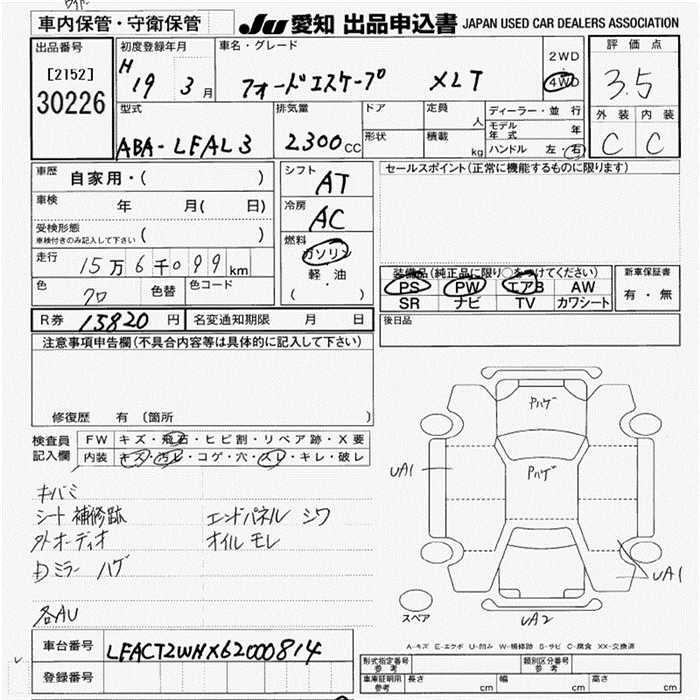 車内保管・守衛保管
JU 愛知 出品申込書 JAPAN USED CAR DEALERS ASSOCIATION
出品番号
[2152]
30226
初度登録年月
H 19 3月
車名・グレード
フォードエスケープ XLT
2WD
4WD
評価点
3.5
外装 内装
C C
型式
ABA-LFAL3
排気量
2300cc
ドア
形状
定員 人
積載 kg
ディーラー・並行
モデル年式 年
ハンドル 左・右
車歴 自家用・( )
車検 年 月( 日)
受検形態
車検付きのみ記入して下さい ( )
走行 15万6千099km
色 クロ 色替 色コード
シフト AT
冷房 AC
燃料
ガソリン
軽油
( ・ )
セールスポイント(正常に機能するものに限ります)
装備品(純正品に限り○をつけてください)
PS PW エアB AW
SR ナビ TV カワシート
新車保証書
有・無
後日品
R券 15820円 名変通知期限 月 日
注意事項申告欄(不具合内容等は具体的に記入して下さい)
修復歴 有 (箇所 )
検査員記入欄
FW キズ・飛石・ヒビ割・リペア跡・X要
内装 キズ・汚レ・コゲ・穴・スレ・キレ・破レ
キバミ
シート補修跡 エンドパネル シワ
外オーディオ オイルモレ
Dミラー ハゲ
各AU
Pハゲ
Pハゲ
UA1
UA1
UA2
スペア
A-キズ E-エクボ U-凹み W-補修跡 S-サビ C-腐食 XX-交換済
車台番号 LFACT2WHX62000814
登録番号
形式指定番号 参考
類別区分番号 参考
車庫証明用 参考 長さ cm 幅 cm 高さ cm